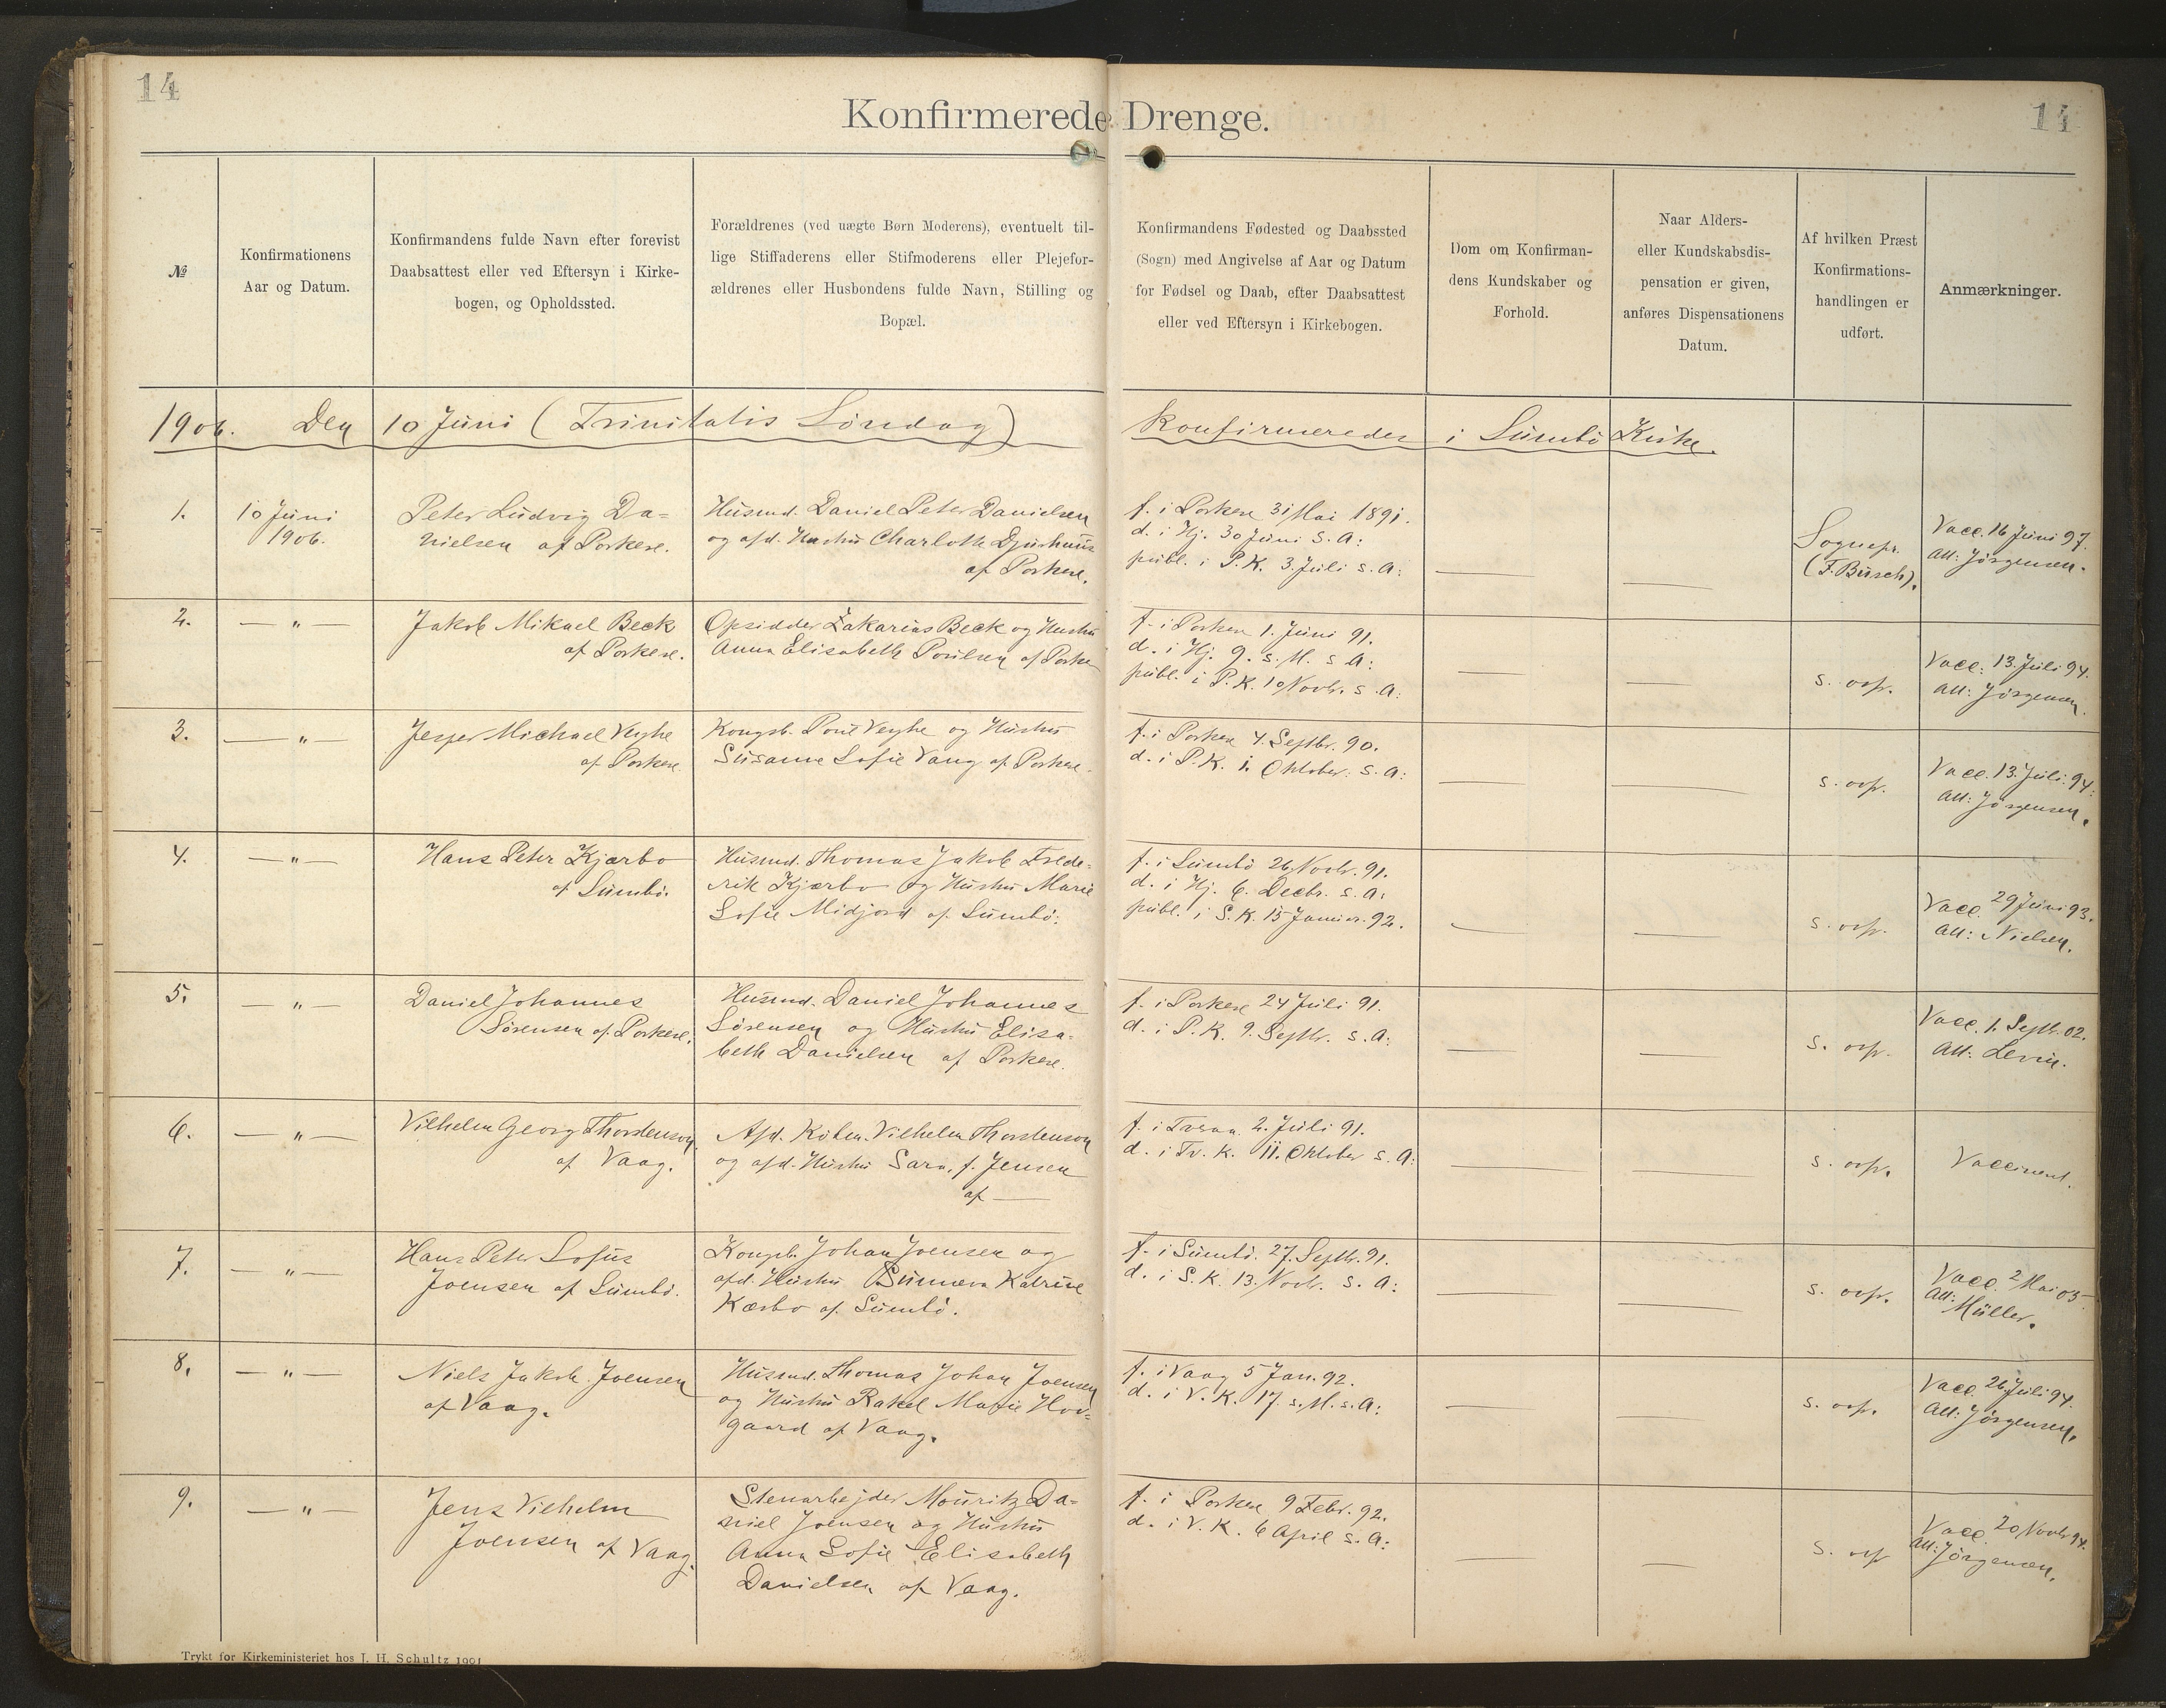 14
14
Konfirmerede Drenge.
№
Konfirmationens
Aar og Datum.
Konfirmandens fulde Navn efter forevist
Daabsattest eller ved Eftersyn i Kirke-
bogen, og Opholdssted.
Forældrenes (ved uægte Børn Moderens), eventuelt til-
lige Stiffaderens eller Stifmoderens eller Plejefor-
ældrenes eller Husbondens fulde Navn, Stilling og
Bopæl.
Konfirmandens Fødested og Daabssted
(Sogn) med Angivelse af Aar og Datum
for Fødsel og Daab, efter Daabsattest
eller ved Eftersyn i Kirkebogen.
Dom om Konfirman-
dens Kundskaber og
Forhold.
Naar Alders-
eller Kundskabsdis-
pensation er given,
anføres Dispensationens
Datum.
Af hvilken Præst
Konfirmations-
handlingen er
udført.
Anmærkninger.
1906. Den 10 Juni (Trinitatis Søndag) Konfirmeredes i Sumbø Kirke.
1.
10 Juni
1906.
Peter Ludvig Da=
nielsen af Porkere.
Husmd. Daniel Peter Danielsen
og afd. Hustru Charlotte Djurhuus
af Porkere.
f. i Porkere 31 Mai 1891.
d. i Hj. 30 Juni s. A:
publ. i P. K. 3. Juli s. A:
Sognepr.
(F. Busch).
Vacc. 16 Juni 97.
Att: Jørgensen.
2.
— " —
Jakob Mikael Beck
af Porkere.
Opsidder Zakarias Beck og Hustru
Anna Elisabeth Poulsen af Porke
f. i Porkere 1. Juni 91.
d. i Hj. 9. s. M. s A:
publ. i P. K. 10 Novbr. s. A:
s. ovfr.
Vacc: 13. Juli 94.
Att: Jørgensen.
3.
— " —
Jesper Michael Veyhe
af Porkere
Kongsb. Poul Veyhe og Hustru
Susanne Sofie Vaag af Porkere.
f. i Porkere 4. Septbr. 90.
d. i P. K. 1. Oktober. s. A:
s. ovfr.
Vacc. 13. Juli. 94:
Att: Jørgensen.
4.
— " —
Hans Peter Kjærbo
af Sumbø.
Husmd. Thomas Jakob Frede-
rik Kjærbo og Hustru Marie
Sofie Midjord af Sumbø:
f. i Sumbø 26 Novbr. 91.
d. i Hj. 6. Decbr. s. A:
publ. i S. K. 15 Januar. 92.
s. ovfr.
Vacc. 29 Juni 93.
Att: Nielsen.
5.
— " —
Daniel Johannes
Sørensen af Porkere.
Husmd. Daniel Johannes
Sørensen og Hustru Elisa-
beth Danielsen af Porkere.
f. i Porkere 24 Juli 91.
d. i P. K. 9. Septbr. s. A:
s. ovfr.
Vacc. 1. Septbr. 02.
Att: Levin.
6.
— " —
Vilhelm Georg Thorstenson
af Vaag.
Afd. Købm. Vilhelm Thorstenson
og afd. Hustru Sara, f. Jensen
af —
f. i Tværaa 2. Juli 91.
d. i Tv. K. 11. Oktober s. A:
s. ovfr.
Vaccineret.
7.
— " —
Hans Peter Sofus
Joensen af Sumbø.
Kongsb. Johan Joensen og
afd. Hustru Sunneva Katrine
Kærbo af Sumbø.
f. i Sumbø. 27. Septbr. 91.
d. i S. K. 13. Novbr. s. A:
s. ovfr.
Vacc. 2 Mai 05.
Att:
Müller.
8.
— " —
Niels Jakob Joensen
af Vaag.
Husmd. Thomas Johan Joensen
og Hustru Rakel Marie Hov-
gaard af Vaag.
f. i Vaag 5 Jan. 92.
d. i V. K. 17. s. M. s. A:
s. ovfr.
Vacc. 26 Juli 94.
Att: Jørgensen.
9.
— " —
Jens Vilhelm
Joensen af Vaag.
Stenarbejder Mouritz Da-
niel Joensen og Hustru
Anna Sofie Elisabeth
Danielsen af Vaag.
f. i Porkere 9 Febr. 92.
d. i V. K. 6 April s. A:
s. ovfr
Vacc 20 Novbr 94.
Att: Jørgensen.
Trykt for Kirkeministeriet hos J. H. Schultz 1901